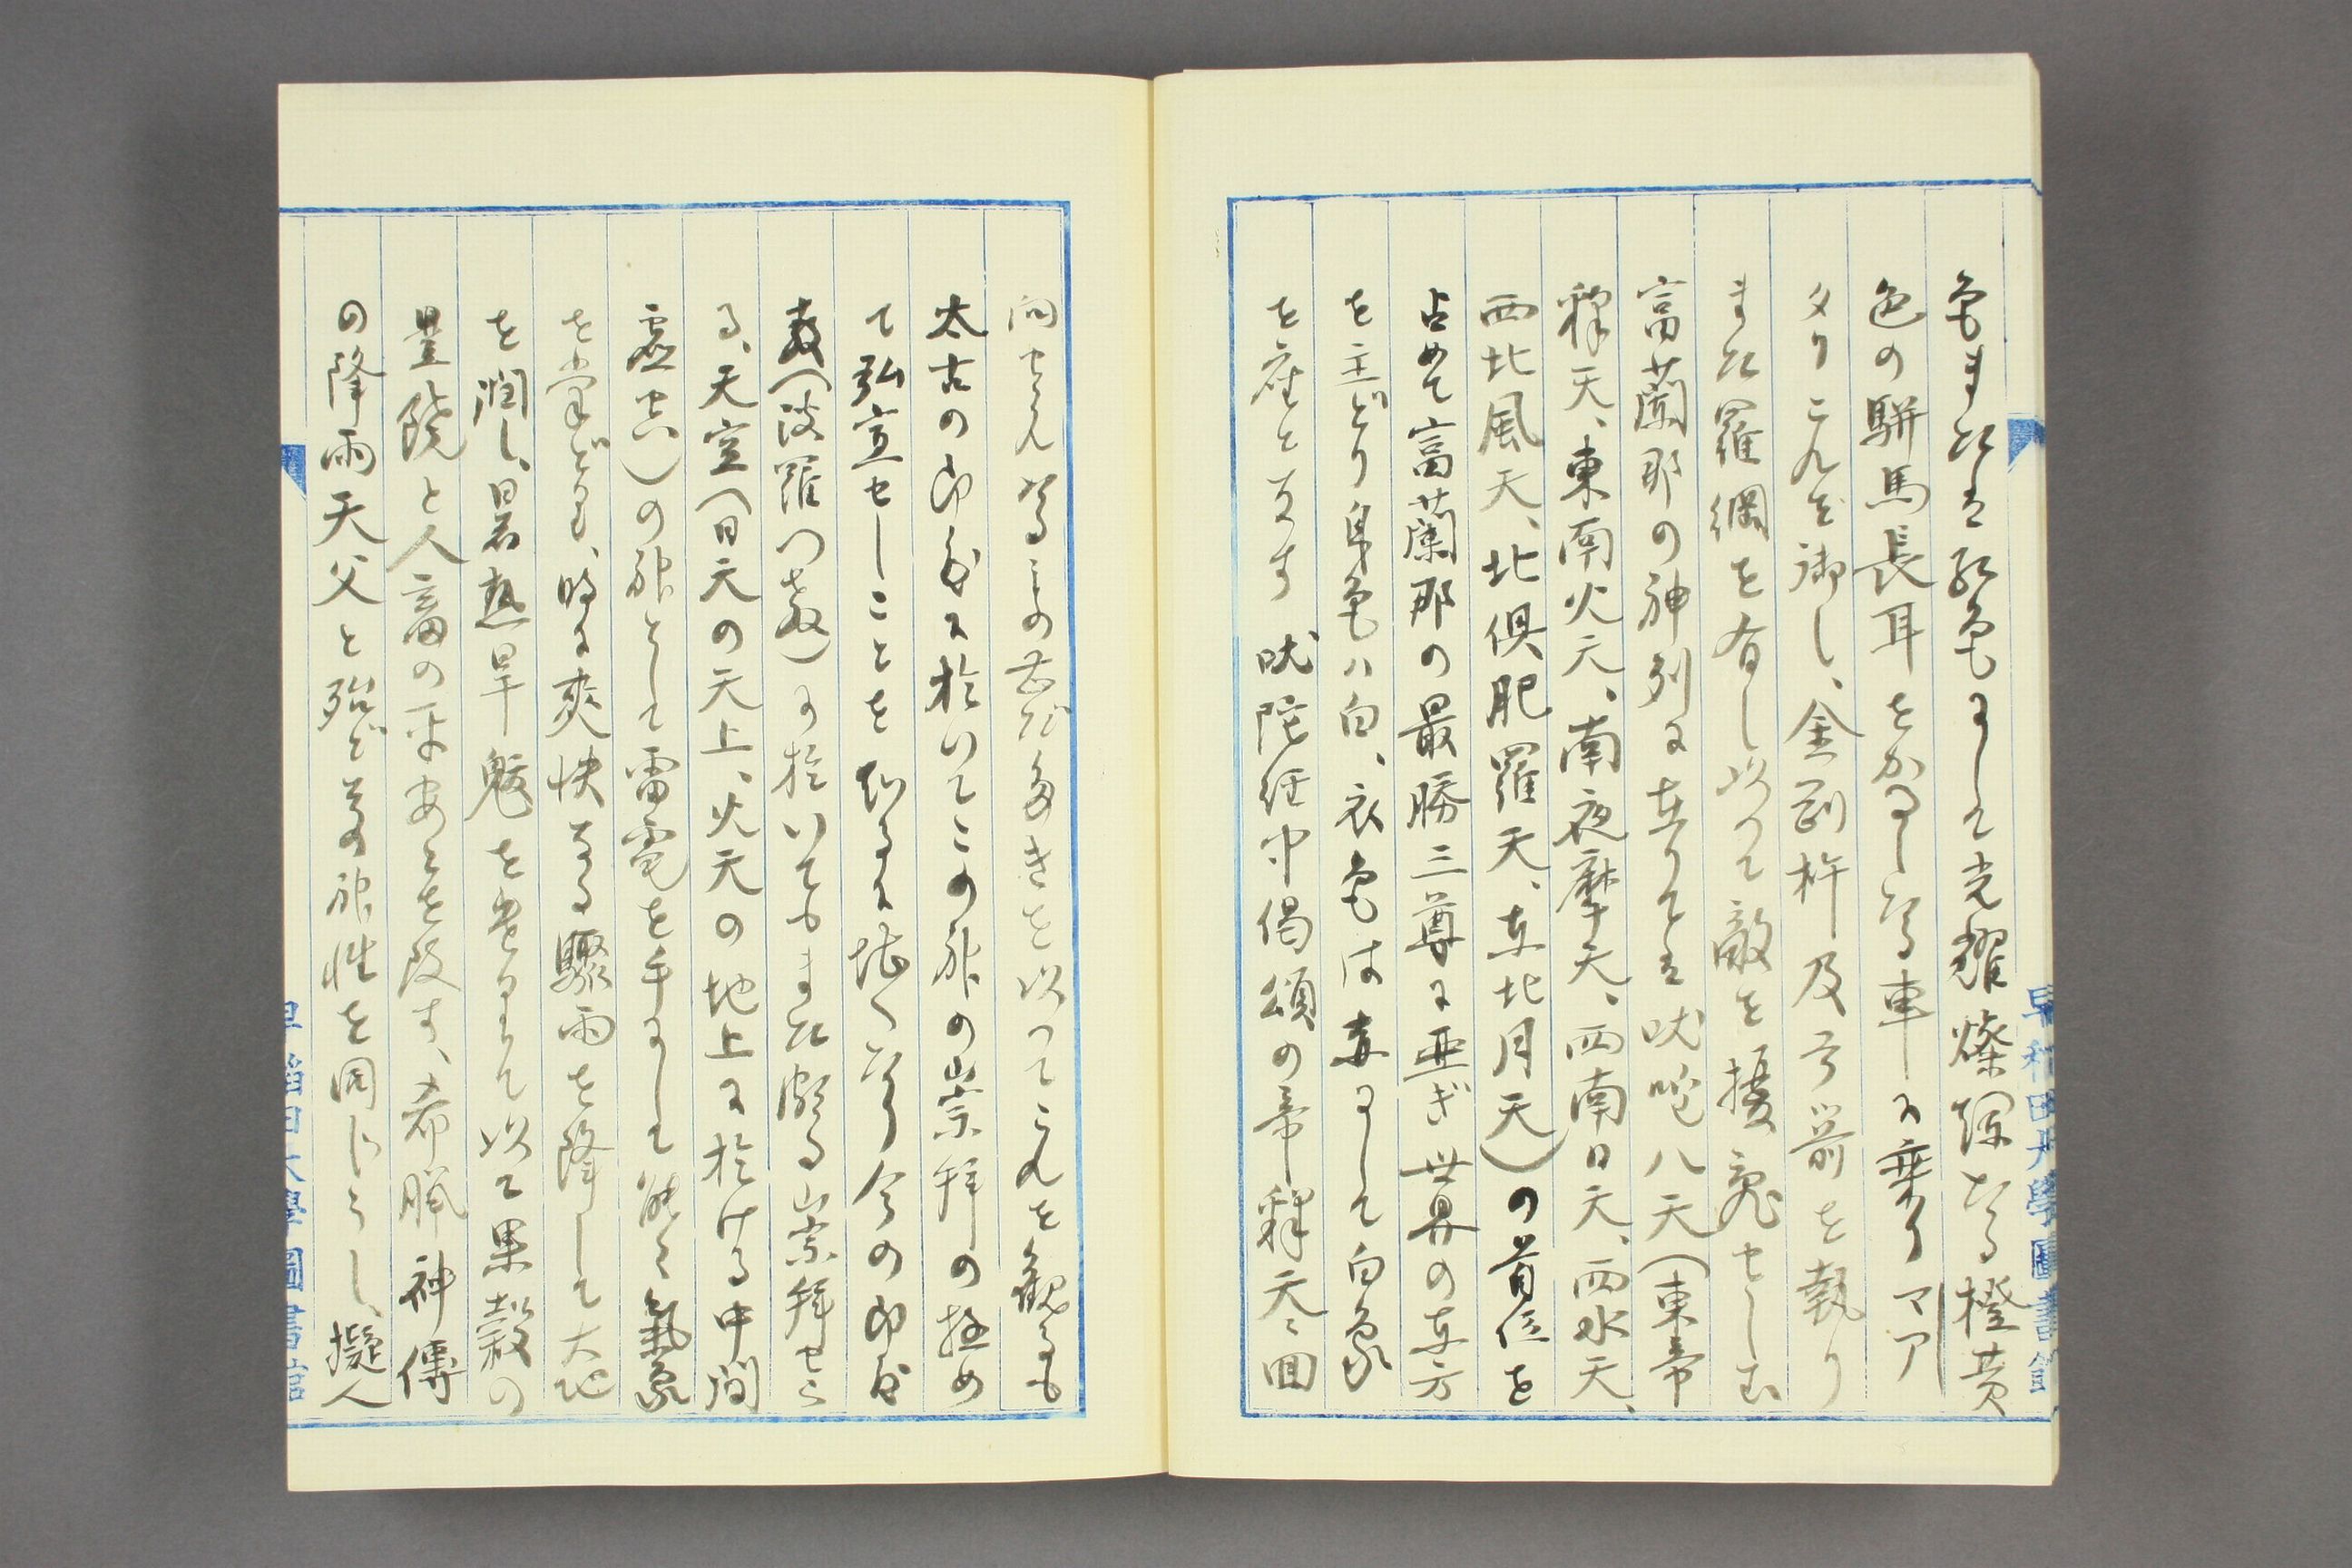 色または紅色にして光耀燦爛たる橙黄
色の駢馬長耳をかしたる車に乗りマア
タリこれを御し、金剛杵及弓箭を執り
また羅網を有し以つて敵を擾乱せしむ
富蘭那の神列に在りては吠嚧八天(東帝
釋天、東南火天、南夜摩天、西南日天、西水天、
西北風天、北倶肥羅天、東北月天)の首位を
占めて富蘭那の最勝三尊に亜ぎ世界の東方
を主どり身色ハ白、衣色は青にして白象
を座となす 吠陀経中偈頌の帝釋天ニ回
向せる この甚だ多きを以つてこれを観るも
太古の印度に於いてこの神の崇拝の極め
て弘宣せしことを知るに堪へたり今の印度
教(波羅門教)に於いてもまた頗る崇拝せら
る、天空(日天の天上、火天の地上に於ける中間
虚空)の神として雷電を手にして能く氣象
を掌どる、時に爽快なる驟雨を降して大地
を潤し、暑熱旱魃を 以て果穀の
豊饒と人畜の平安とを致す、希臘神傳
の降雨天父と殆どその神性を同じうし、擬人
早稲田大學圖書館
早稲田大學圖書館